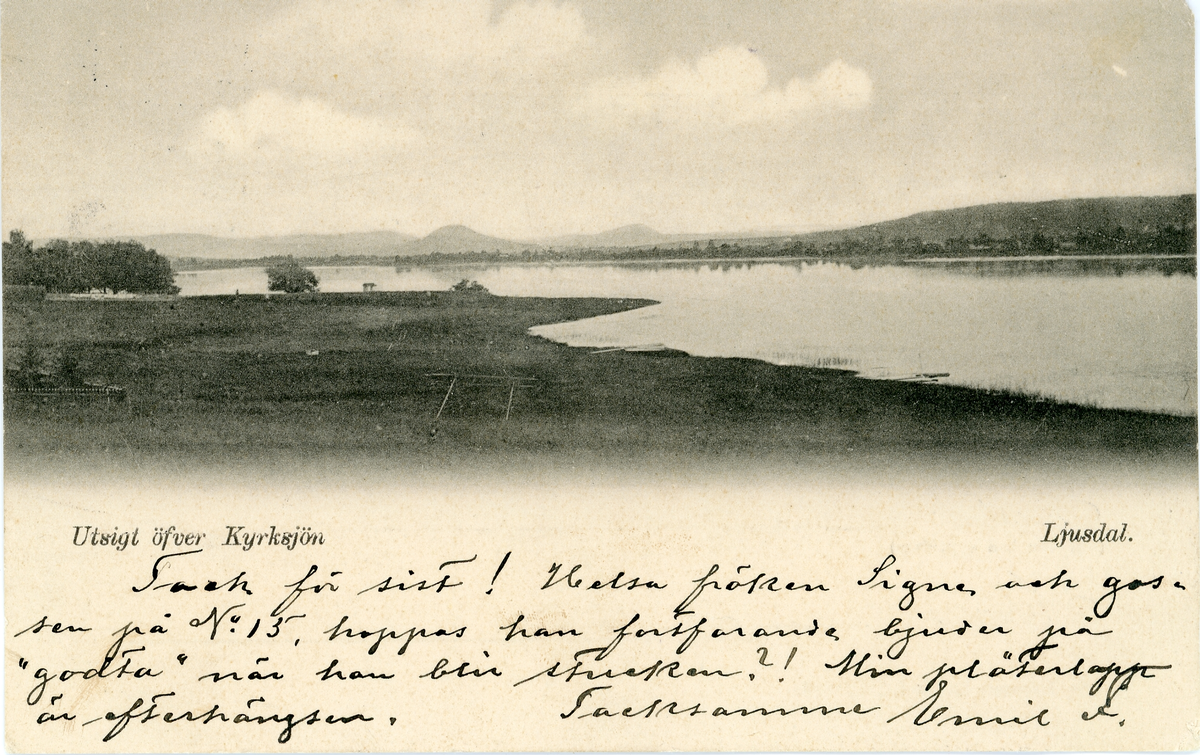 Utsigt öfver Kyrksjön
Ljusdal.
Tack för sist! Helsa fröken Signe och gos-
sen på No 15, hoppas han fortfarande bjuder på
"godta" när han blir stucken?! Min plåsterlapp
är efterhängsen. Tacksamme Emil